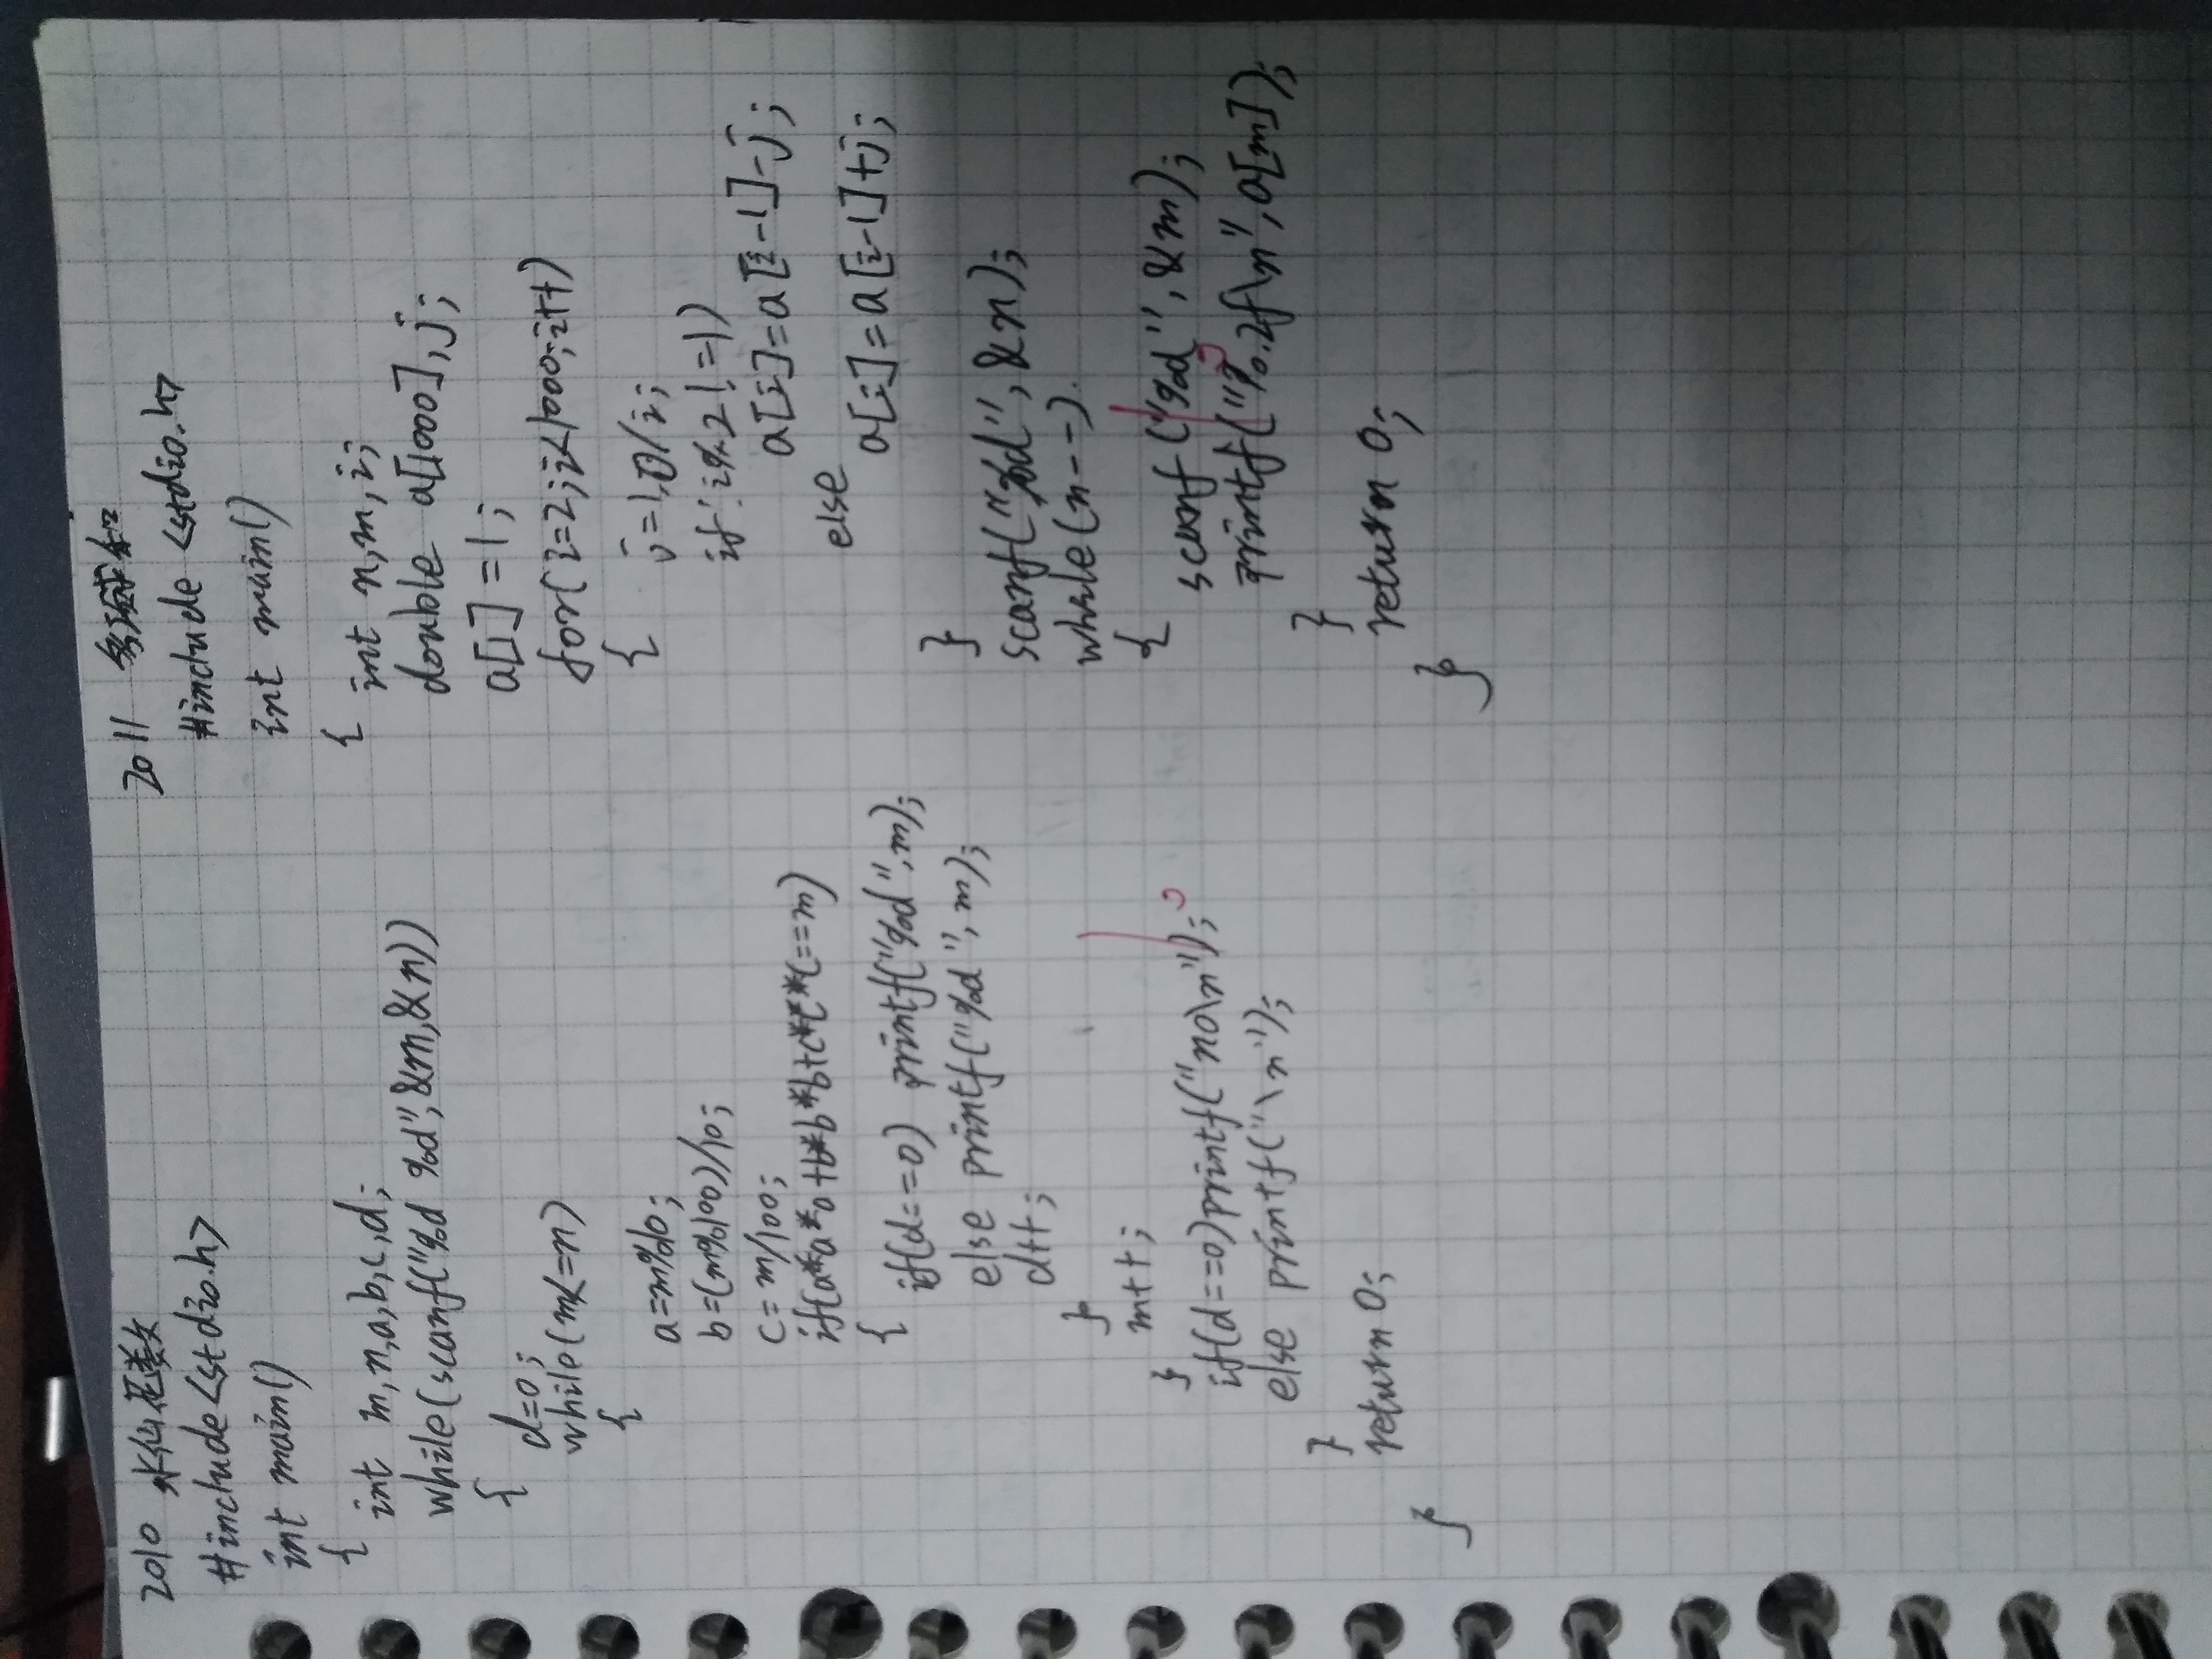 2010 水仙花数
#include<stdio.h>
int main()
{
int m,n,a,b,c,d;
while(scanf("%d %d",&m,&n))
{
d=0;
while(m<=n)
{
a=m%10;
b=(m%100)/10;
c=m/100;
if(a*a*a+b*b*b+c*c*c==m)
{
if(d==0) printf("%d",m);
else printf("%d",m);
d++;
}
m++;
}
if(d==0)printf("no\n");
else printf("\n");
}
return 0;
}
2011 多项式求和
#include <stdio.h>
int main()
{
int n,m,i;
double a[1000],j;
a[1]=1;
for(i=2;i<1000;i++)
{
j=1.0/i;
if(i%2!=1)
a[i]=a[i-1]-j;
else
a[i]=a[i-1]+j;
}
scanf("%d",&n);
while(n--)
{
scanf("%d",&m);
printf("%.2f\n",a[m]);
}
return 0;
}